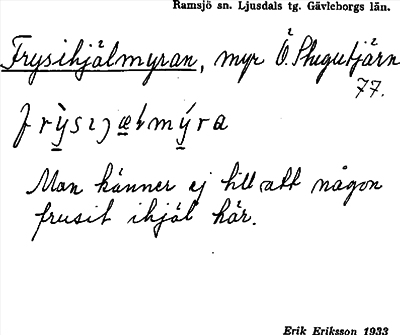 Ramsjö sn. Ljusdals tg. Gävleborgs län.
Frysihjälmyran, myr Ö. Stugutjärn
77.
frysıȷælmýra
Man känner ej till att någon
frusit ihjäl här.
Erik Eriksson 1933